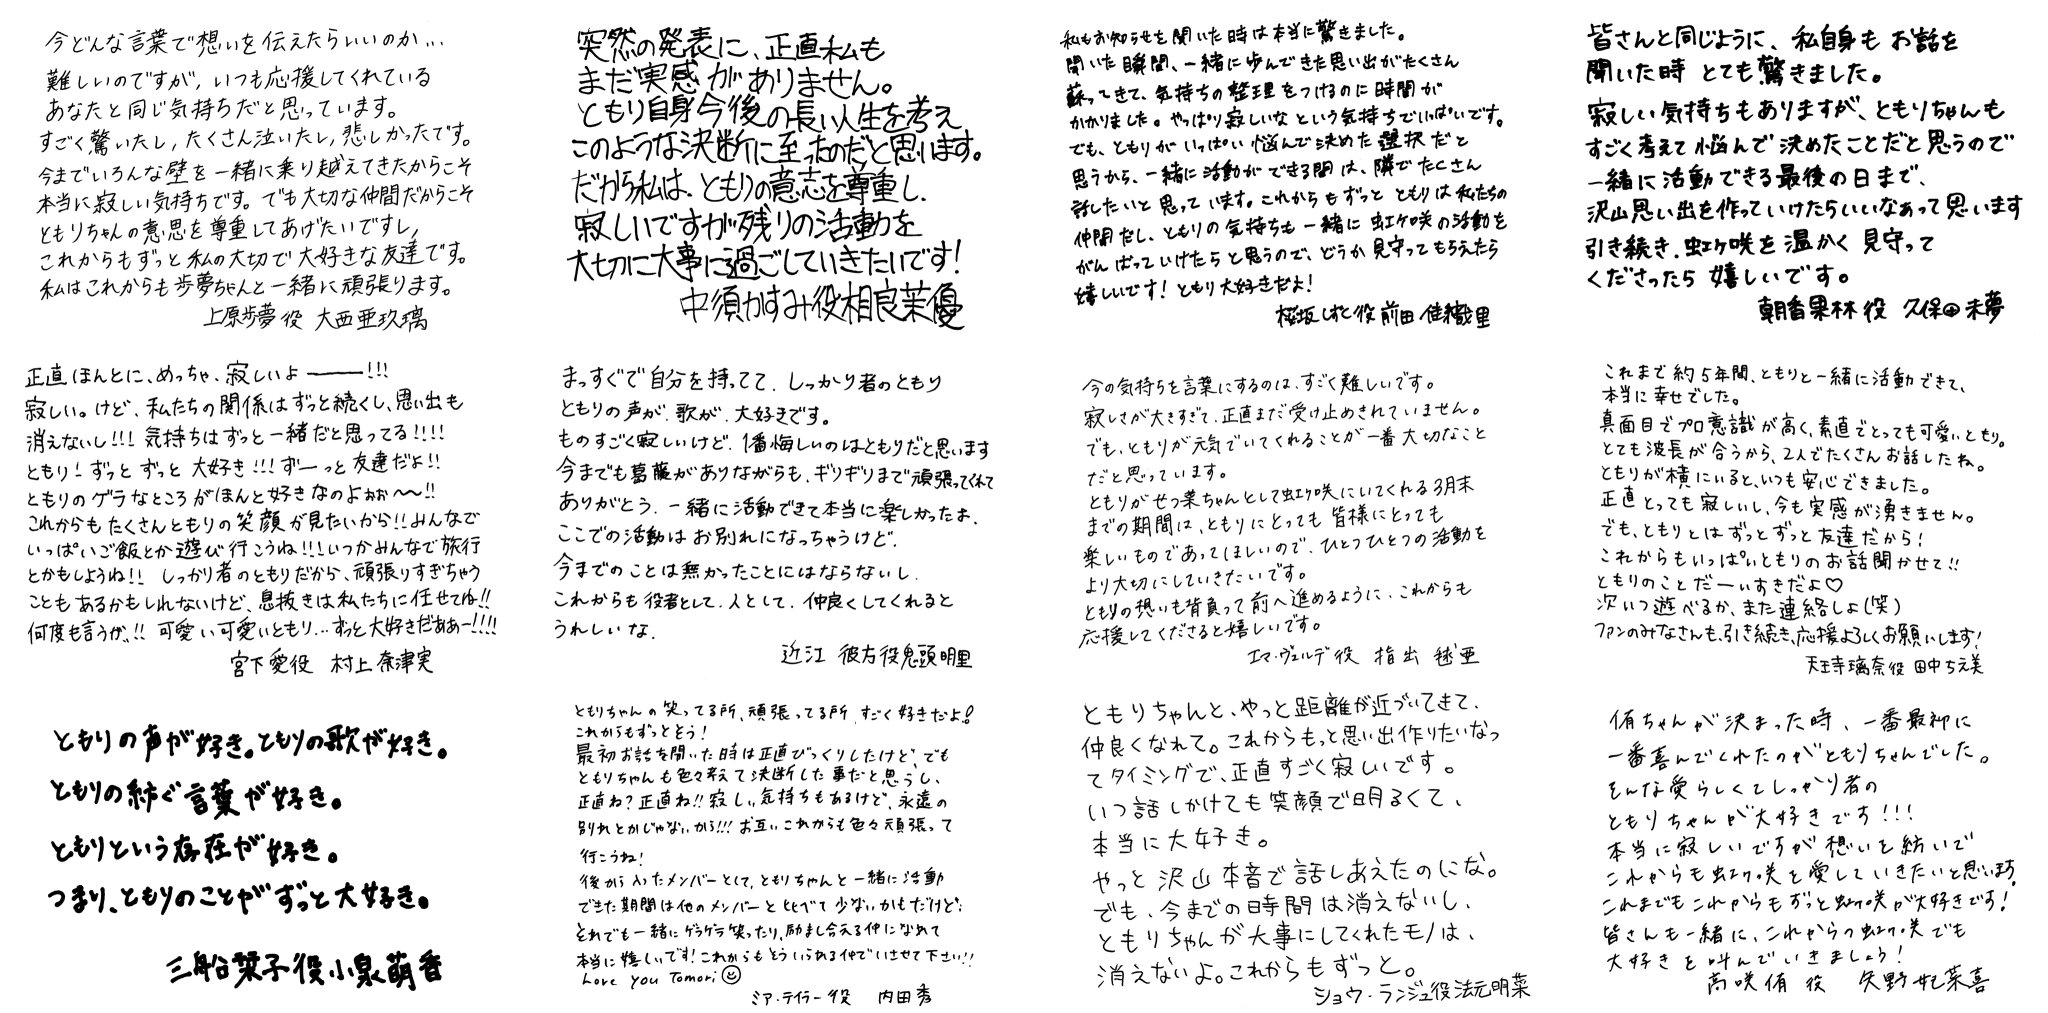 今どんな言葉で想いを伝えたらいいのか…
難しいのですが, いつも応援してくれている
あなたと同じ気持ちだと思っています。
すごく驚いたし, たくさん泣いたし, 悲しかったです。
今までいろんな壁を一緒に乗り越えてきたからこそ
本当に寂しい気持ちです。でも大切な仲間だからこそ
ともりちゃんの意思を尊重してあげたいですし,
これからもずっと私の大切で大好きな友達です。
私はこれからも歩夢ちゃんと一緒に頑張ります。
上原歩夢役 大西亜玖璃
突然の発表に、正直私も
まだ実感がありません。
ともり自身今後の長い人生を考え
このような決断に至ったのだと思います。
だから私は、ともりの意志を尊重し、
寂しいですが残りの活動を
大切に大事に過ごしていきたいです!
中須かすみ役相良茉優
私もお知らせを聞いた時は本当に驚きました。
聞いた瞬間、一緒に歩んできた思い出がたくさん
蘇ってきて、気持ちの整理をつけるのに時間が
かかりました。やっぱり寂しいなという気持ちでいっぱいです。
でも、ともりがいっぱい悩んで決めた選択だと
思うから、一緒に活動ができる間は、隣でたくさん
話したいと思っています。これからもずっとともりは私たちの
仲間だし、ともりの気持ちも一緒に虹ヶ咲の活動を
がんばっていけたらと思うので、どうか見守ってもらえたら
嬉しいです! ともり大好きだよ!
桜坂しずく役 前田佳織里
皆さんと同じように、私自身もお話を
聞いた時とても驚きました。
寂しい気持ちもありますが、ともりちゃんも
すごく考えて悩んで決めたことだと思うので
一緒に活動できる最後の日まで、
沢山思い出を作っていけたらいいなあって思います
引き続き、虹ヶ咲を温かく見守って
くださったら嬉しいです。
朝香果林役 久保田未夢
正直ほんとに、めっちゃ、寂しいよ―――!!!
寂しい。けど、私たちの関係はずっと続くし、思い出も
消えないし!!! 気持ちはずっと一緒だと思ってる!!!!
ともり! ずっとずっと 大好き!!! ずーっと友達だよ!!
ともりのゲラなところがほんと好きなのよぉぉ〜〜!!
これからもたくさんともりの笑顔が見たいから!! みんなで
いっぱいご飯とか遊び行こうね!!! いつかみんなで旅行
とかもしようね!! しっかり者のともりだから、頑張りすぎちゃう
こともあるかもしれないけど、息抜きは私たちに任せてね!!
何度も言うが、!! 可愛い可愛いともり…ずっと大好きだああー!!!!
宮下愛役 村上奈津実
まっすぐで自分を持ってて、しっかり者のともり
ともりの声が、歌が、大好きです。
ものすごく寂しいけど、1番悔しいのはともりだと思います
今までも葛藤がありながらも、ギリギリまで頑張ってくれて
ありがとう、一緒に活動できて本当に楽しかったよ、
ここでの活動はお別れになっちゃうけど、
今までのことは無かったことにはならないし、
これからも役者として、人として、仲良くしてくれると
うれしいな、
近江 彼方役鬼頭明里
今の気持ちを言葉にするのは、すごく難しいです。
寂しさが大きすぎて、正直まだ受け止めきれていません。
でも、ともりが元気でいてくれることが一番大切なこと
だと思っています。
ともりがせつ菜ちゃんとして虹ヶ咲にいてくれる3月末
までの期間は、ともりにとっても皆様にとっても
楽しいものであってほしいので、ひとつひとつの活動を
より大切にしていきたいです。
ともりの想いも背負って前へ進めるように、これからも
応援してくださると嬉しいです。
エマ・ヴェルデ役 指出毬亜
これまで約5年間、ともりと一緒に活動できて、
本当に幸せでした。
真面目でプロ意識が高く、素直でとっても可愛いともり。
とても波長が合うから、2人でたくさんお話したね。
ともりが横にいると、いつも安心できました。
正直とっても寂しいし、今も実感が湧きません。
でも、ともりとはずっとずっと友達だから!
これからもいっぱいともりのお話聞かせて!!
ともりのことだーいすきだよ♡
次いつ遊べるか、また連絡しよ(笑)
ファンのみなさんも、引き続き、応援よろしくお願いします!
天王寺璃奈役 田中ちえ美
ともりの声が好き。ともりの歌が好き。
ともりの紡ぐ言葉が好き。
ともりという存在が好き。
つまり、ともりのことがずっと大好き。
三船栞子役小泉萌香
ともりちゃんの笑ってる所、頑張ってる所、すごく好きだよ!
これからもずっとそう!
最初お話を聞いた時は正直びっくりしたけど、でも
ともりちゃんも色々考えて決断した事だと思うし、
正直ね?正直ね!! 寂しい気持ちもあるけど、永遠の
別れとかじゃないから!!! お互いこれからも色々頑張って
行こうね!
後から入ったメンバーとして、ともりちゃんと一緒に活動
できた期間は他のメンバーと比べて少ないかもだけど、
それでも一緒にゲラゲラ笑ったり、励まし合える仲になれて
本当に嬉しいです! これからもそういられる仲でいさせて下さい!!
Love you Tomori☺
ミア・テイラー役 内田秀
ともりちゃんと、やっと距離が近づいてきて、
仲良くなれて。これからもっと思い出作りたいなっ
てタイミングで、正直すごく寂しいです。
いつ話しかけても笑顔で明るくて、
本当に大好き。
やっと沢山本音で話しあえたのにな。
でも、今までの時間は消えないし、
ともりちゃんが大事にしてくれたモノは、
消えないよ。これからもずっと。
ショウ・ランジュ役法元明菜
侑ちゃんが決まった時、一番最初に
一番喜んでくれたのがともりちゃんでした。
そんな愛らしくてしっかり者の
ともりちゃんが大好きです!!!
本当に寂しいですが想いを紡いで
これからも虹ヶ咲を愛していきたいと思います。
これまでもこれからもずっと虹ヶ咲が大好きです!
皆さんも一緒に、これからの虹ヶ咲でも
大好きを叫んでいきましょう!
高咲侑役 矢野妃菜喜